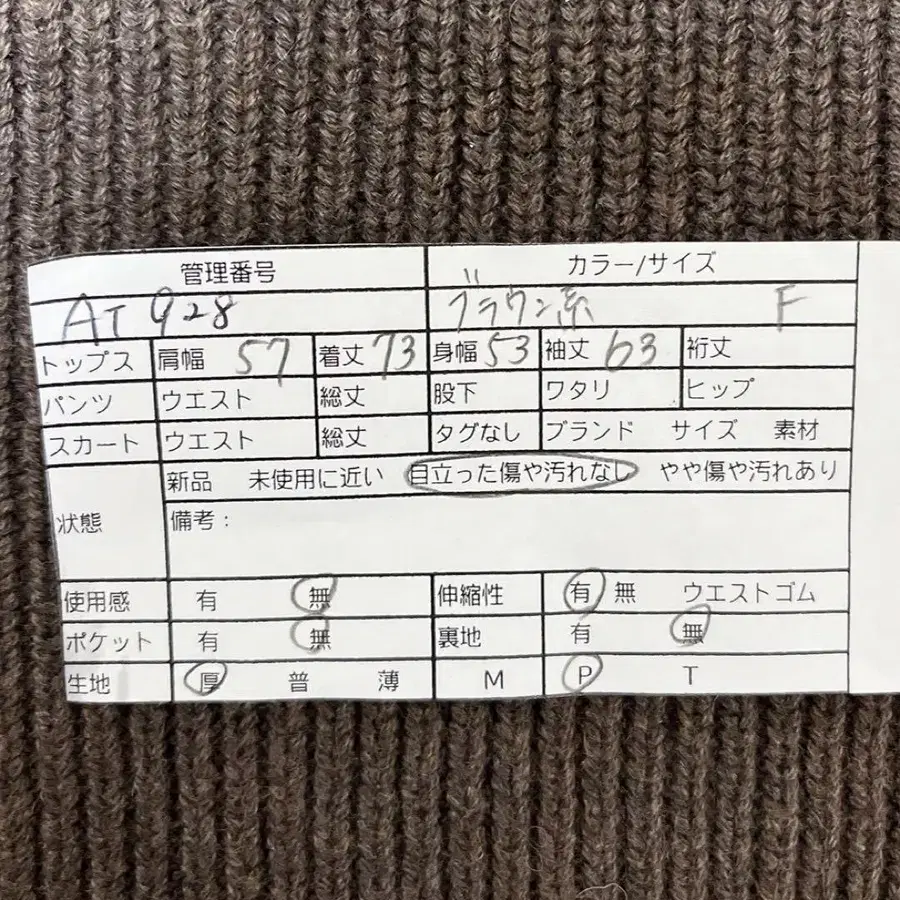 管理番号 カラー/サイズ
AT 928 ブラウン系 F
トップス 肩幅 57 着丈 73 身幅 53 袖丈 63 裄丈
パンツ ウエスト 総丈 股下 ワタリ ヒップ
スカート ウエスト 総丈 タグなし ブランド サイズ 素材
状態 新品 未使用に近い 目立った傷や汚れなし やや傷や汚れあり
備考：
使用感 有 無 伸縮性 有 無 ウエストゴム
ポケット 有 無 裏地 有 無
生地 厚 普 薄 M P T